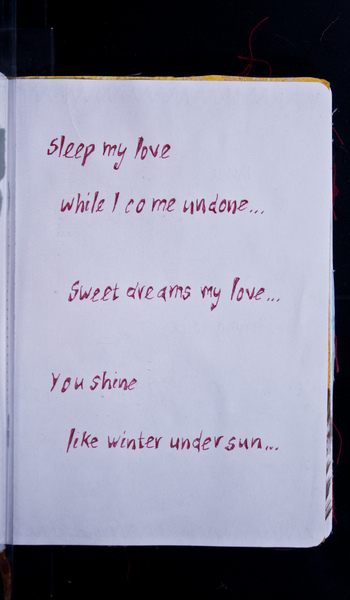 Sleep my love
while I come undone...
Sweet dreams my love...
You shine
like winter under sun...